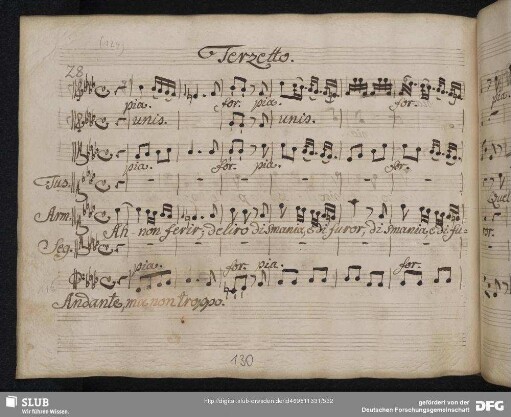 Terzetto.
28.
pia. for. pia. for.
unis. unis.
pia. for. pia. for.
Arm.
Ah non ferir, deliro di smania, e di furor, di smania, e di fu=
Seg.
pia. for. pia. for.
Andante, ma non troppo.
130
pia.
Quel
ror.
SLUB
Wir führen Wissen.
gefördert von der
Deutschen Forschungsgemeinschaft
DFG